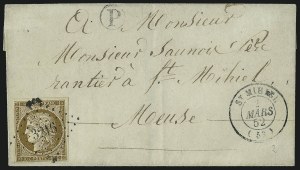 A Monsieur
P
Monsieur Saunois Père
rentier à St. Mihiel
Meuse
ST MIHIEL
MARS
52